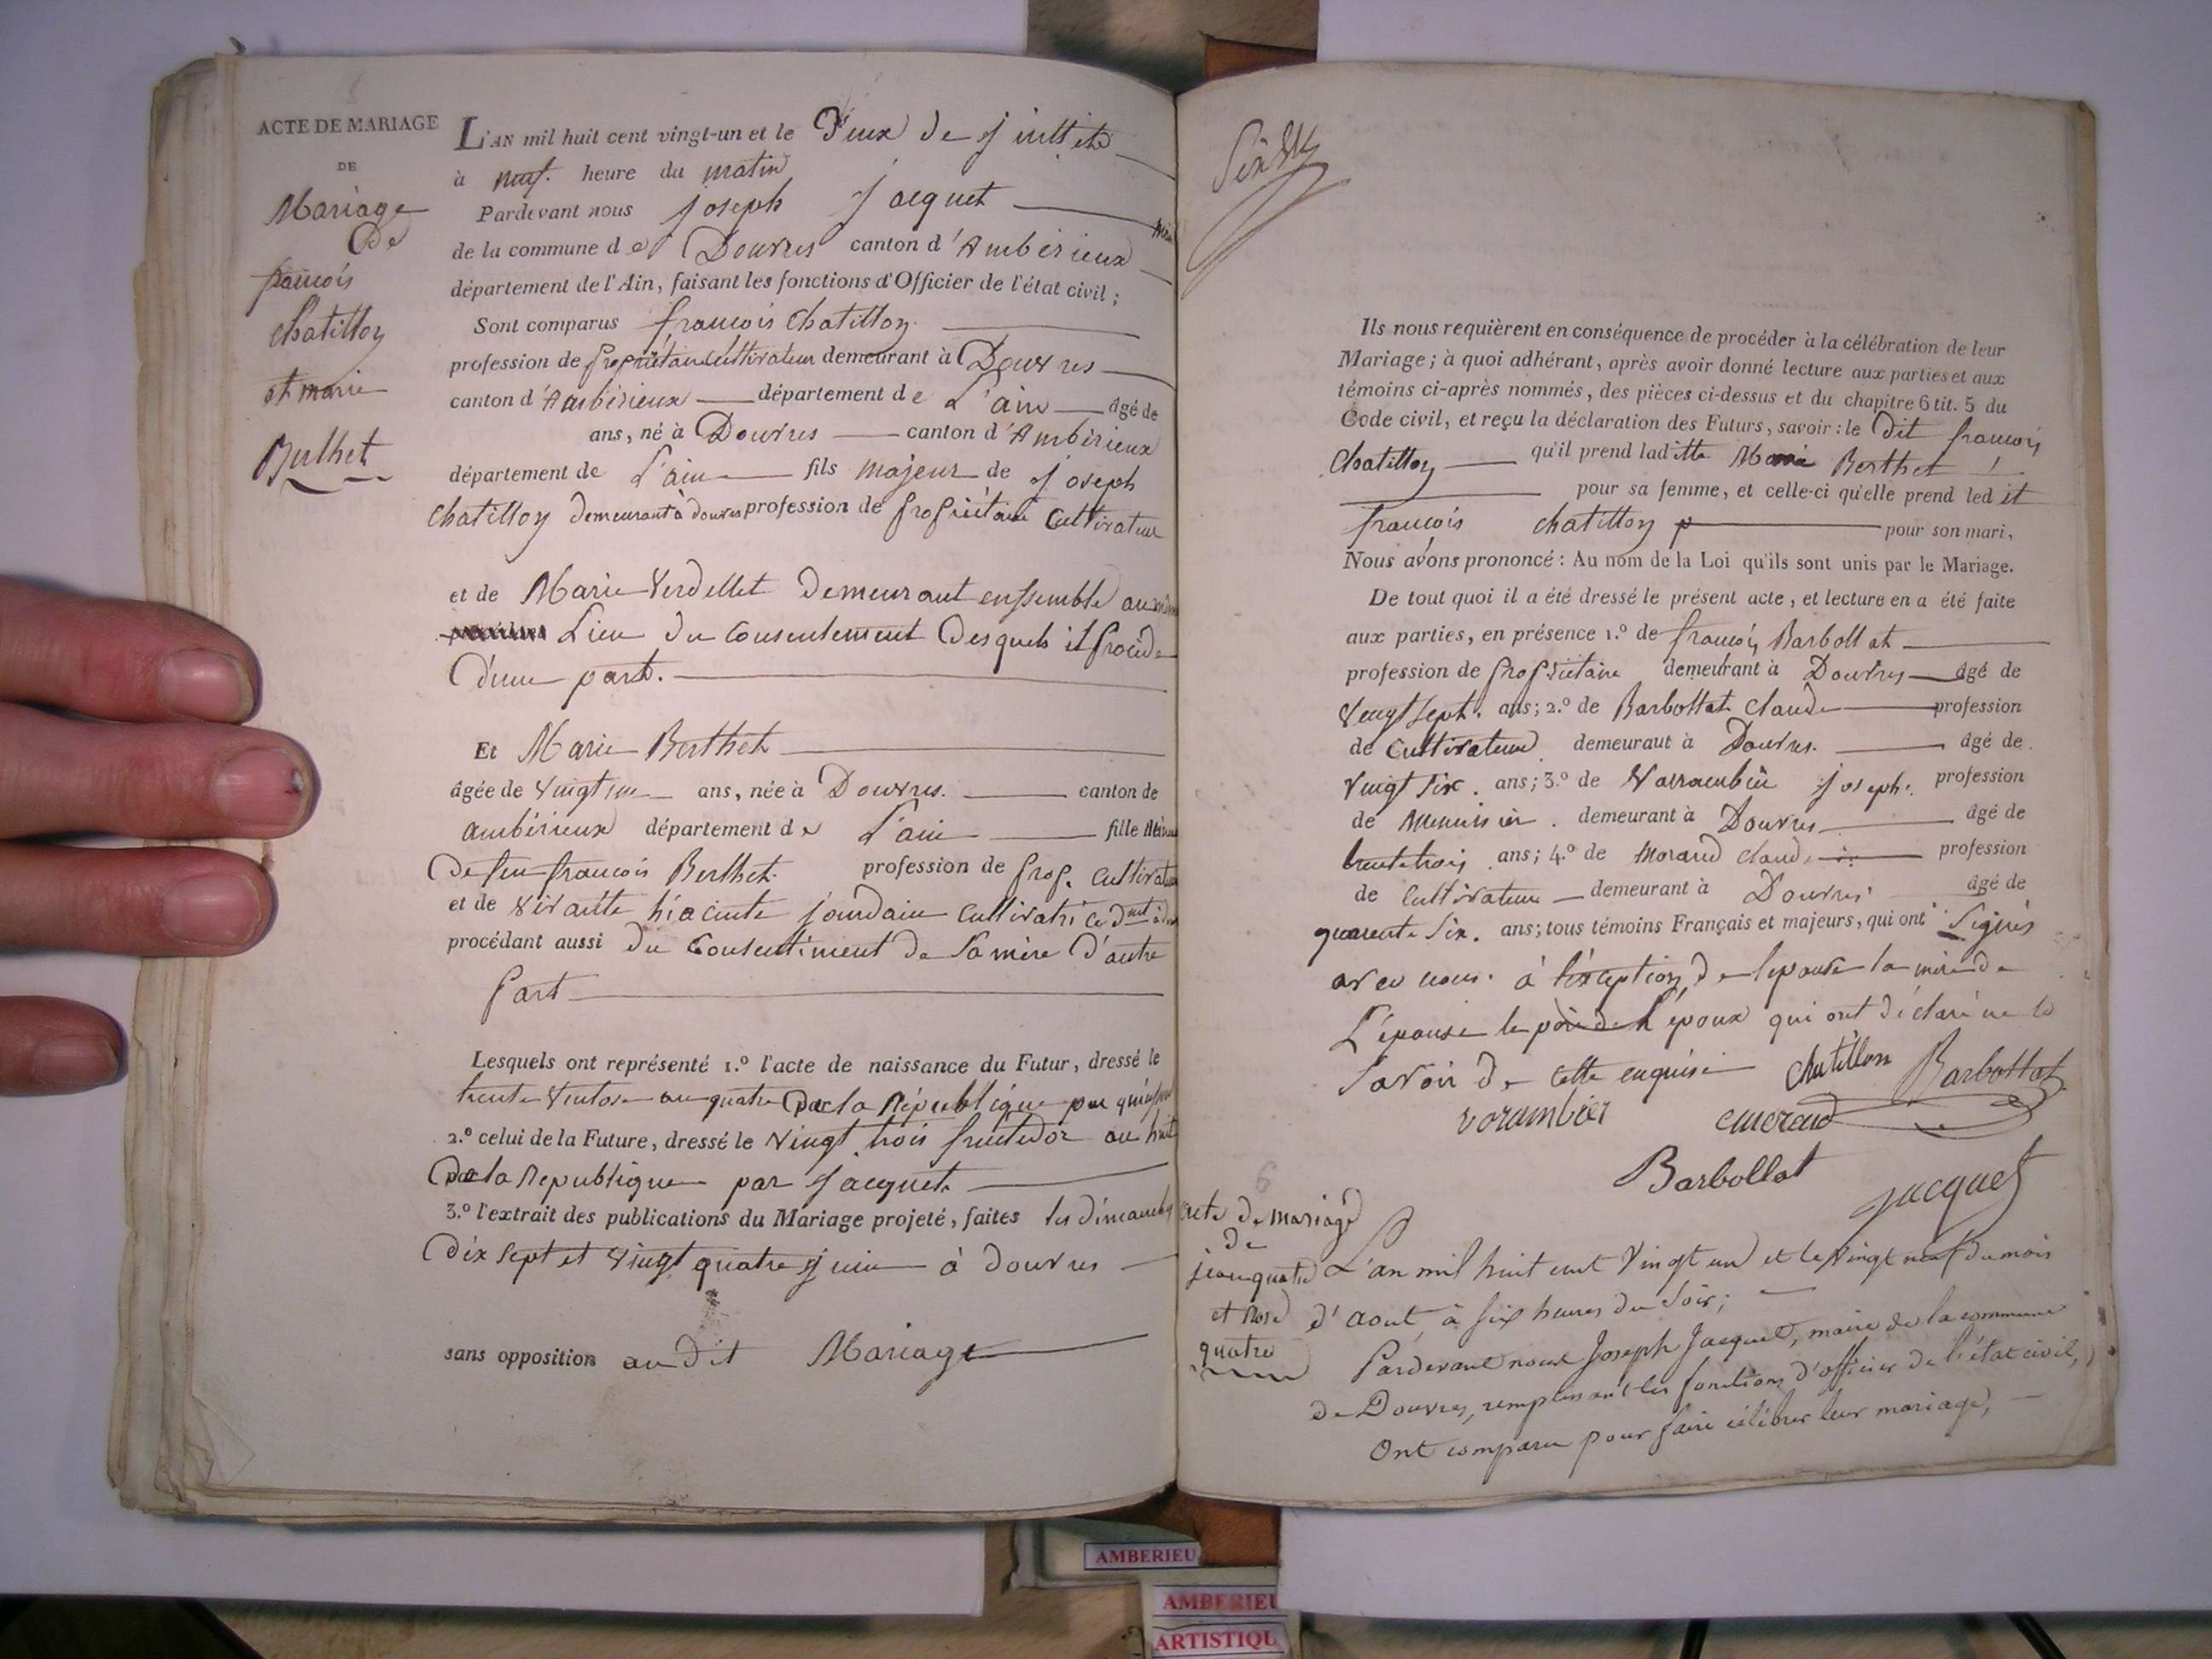 ACTE DE MARIAGE
DE
Mariage
De
francois
Chatillon
et marie
Berthet
L'AN mil huit cent vingt-un et le Deux de Juillet
à neuf. heure du matin
Pardevant nous Joseph Jacquet
de la commune de Douvres canton d'Ambérieux
département de l'Ain, faisant les fonctions d'Officier de l'état civil;
Sont comparus francois Chatillon
profession de propriétaire Cultivateur demeurant à Douvres
canton d'Ambérieux département de L'ain âgé de
ans, né à Douvres canton d'Ambérieux
département de L'ain fils majeur de Joseph
Chatillon demeurant à douvres profession de propriétaire Cultivateur
et de Marie Verdellet Demeurant enssemble au
Lieu du Consentement Desquels il procède
D'une part.
Et Marie Berthet
âgée de Vingt un ans, née à Douvres. canton de
ambérieux département de L'ain fille
De feu francois Berthet. profession de prop. cultivateur
et de vivante hiacinte jourdain cultivatrice
procédant aussi du Consentiment de Sa mère D'autre
part
Lesquels ont représenté 1.º l'acte de naissance du Futur, dressé le
trente Ventose an quatre De la République par
2.º celui de la Future, dressé le Vingt trois fructidor an huit
De la Republique par Jacquet
3.º l'extrait des publications du Mariage projeté, faites les dimanches
Dix Sept et Vingt quatre Juin à douvres
sans opposition au Dit Mariage
Ils nous requièrent en conséquence de procéder à la célébration de leur
Mariage; à quoi adhérant, après avoir donné lecture aux parties et aux
témoins ci-après nommés, des pièces ci-dessus et du chapitre 6 tit. 5 du
Code civil, et reçu la déclaration des Futurs, savoir: le Dit francois
Chatillon qu'il prend laditte Marie Berthet
pour sa femme, et celle-ci qu'elle prend ledit
francois chatillon pour son mari,
Nous avons prononcé: Au nom de la Loi qu'ils sont unis par le Mariage.
De tout quoi il a été dressé le présent acte, et lecture en a été faite
aux parties, en présence 1.º de francois Barbollat
profession de propriétaire demeurant à Douvres âgé de
Vengt sept. ans; 2.º de Barbollat Claude profession
de Cultivateur demeurant à Douvres. âgé de
Vingt six. ans; 3.º de Varrambier joseph. profession
de Menuisier. demeurant à Douvres âgé de
trente trois ans; 4.º de Morand Claude profession
de Cultivateur demeurant à Douvres âgé de
quarente Six. ans; tous témoins Français et majeurs, qui ont Signés
avec nous. à l'exception de l'epouse la mère de
L'épouse le père de l'époux qui ont déclaré ne le
Savoir de cette enquise Chatillon Barbollat
vorambier cmoraud
Barbollat
jacquet
6
Acte De Mariage
De
jean quatre
et Rose
quatre
L'an mil huit cent vingt un et le vingt neuf du mois
d'aout à six heures du soir;
Pardevant nous Joseph Jacquet, maire de la commune
de Douvres, remplissant les fonctions d'officier de l'état civil,
Ont comparu pour faire célébrer leur mariage,
AMBERIEU
AMBERIEU
ARTISTIQU